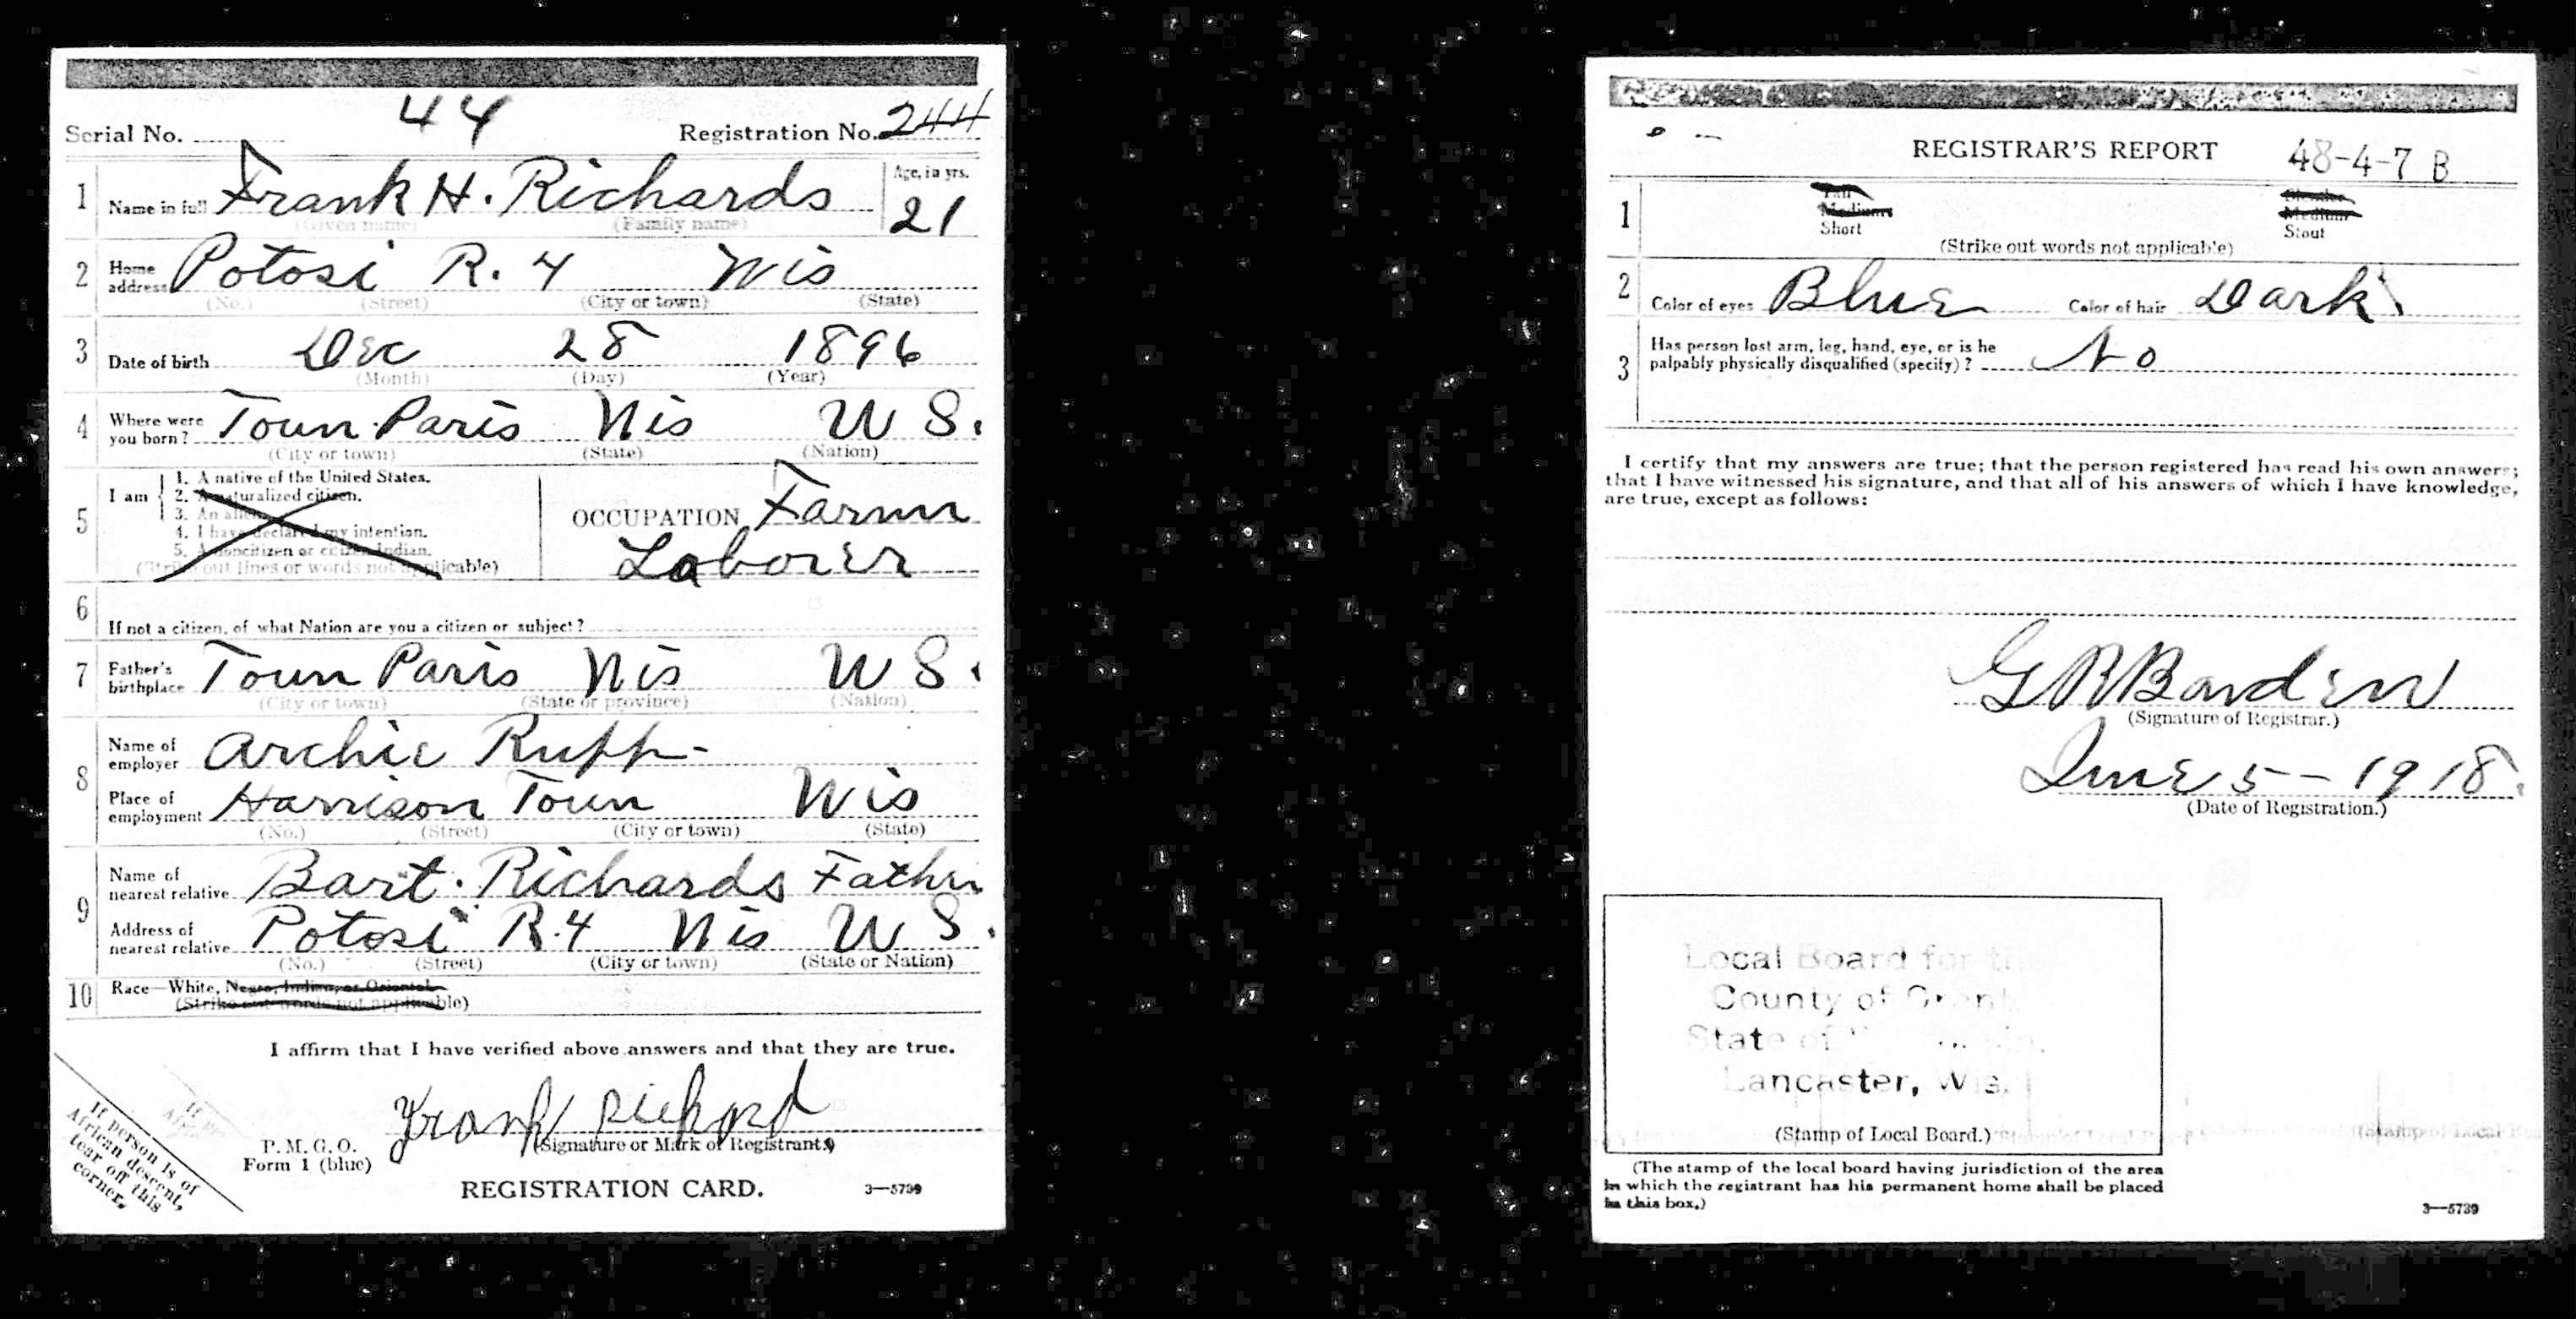 Serial No. 44 Registration No. 244
1 Name in full Frank H. Richards Age, in yrs. 21
(Given name) (Family name)
2 Home address Potosi R. 4 Wis
(No.) (Street) (City or town) (State)
3 Date of birth Dec 28 1896
(Month) (Day) (Year)
4 Where were you born? Town Paris Wis U S.
(City or town) (State) (Nation)
5 I am
1. A native of the United States.
2. A naturalized citizen.
3. An alien.
4. I have declared my intention.
5. A noncitizen or citizen Indian.
(Strike out lines or words not applicable)
OCCUPATION Farm
Laborer
6 If not a citizen, of what Nation are you a citizen or subject?
7 Father's birthplace Town Paris Wis U S.
(City or town) (State or province) (Nation)
8 Name of employer Archie Rupp
Place of employment Harrison Town Wis
(No.) (Street) (City or town) (State)
9 Name of nearest relative Bart. Richards Father
Address of nearest relative Potosi R. 4 Wis U S.
(No.) (Street) (City or town) (State or Nation)
10 Race—White, Negro, Indian, or Oriental
(Strike out words not applicable)
I affirm that I have verified above answers and that they are true.
Frank Richard
(Signature or Mark of Registrant.)
P. M. G. O.
Form 1 (blue)
REGISTRATION CARD. 3—5739
If person is of
African descent,
tear off this
corner.
REGISTRAR'S REPORT 48-4-7 B
1 Tall Slender
Medium Medium
Short Stout
(Strike out words not applicable)
2 Color of eyes Blue Color of hair Dark
3 Has person lost arm, leg, hand, eye, or is he
palpably physically disqualified (specify)? No
I certify that my answers are true; that the person registered has read his own answers;
that I have witnessed his signature, and that all of his answers of which I have knowledge,
are true, except as follows:
G R Barden
(Signature of Registrar.)
June 5 - 1918.
(Date of Registration.)
Local Board for the
County of Grant
State of
Lancaster, Wis.
(Stamp of Local Board.)
(The stamp of the local board having jurisdiction of the area
in which the registrant has his permanent home shall be placed
in this box.)
3—5739